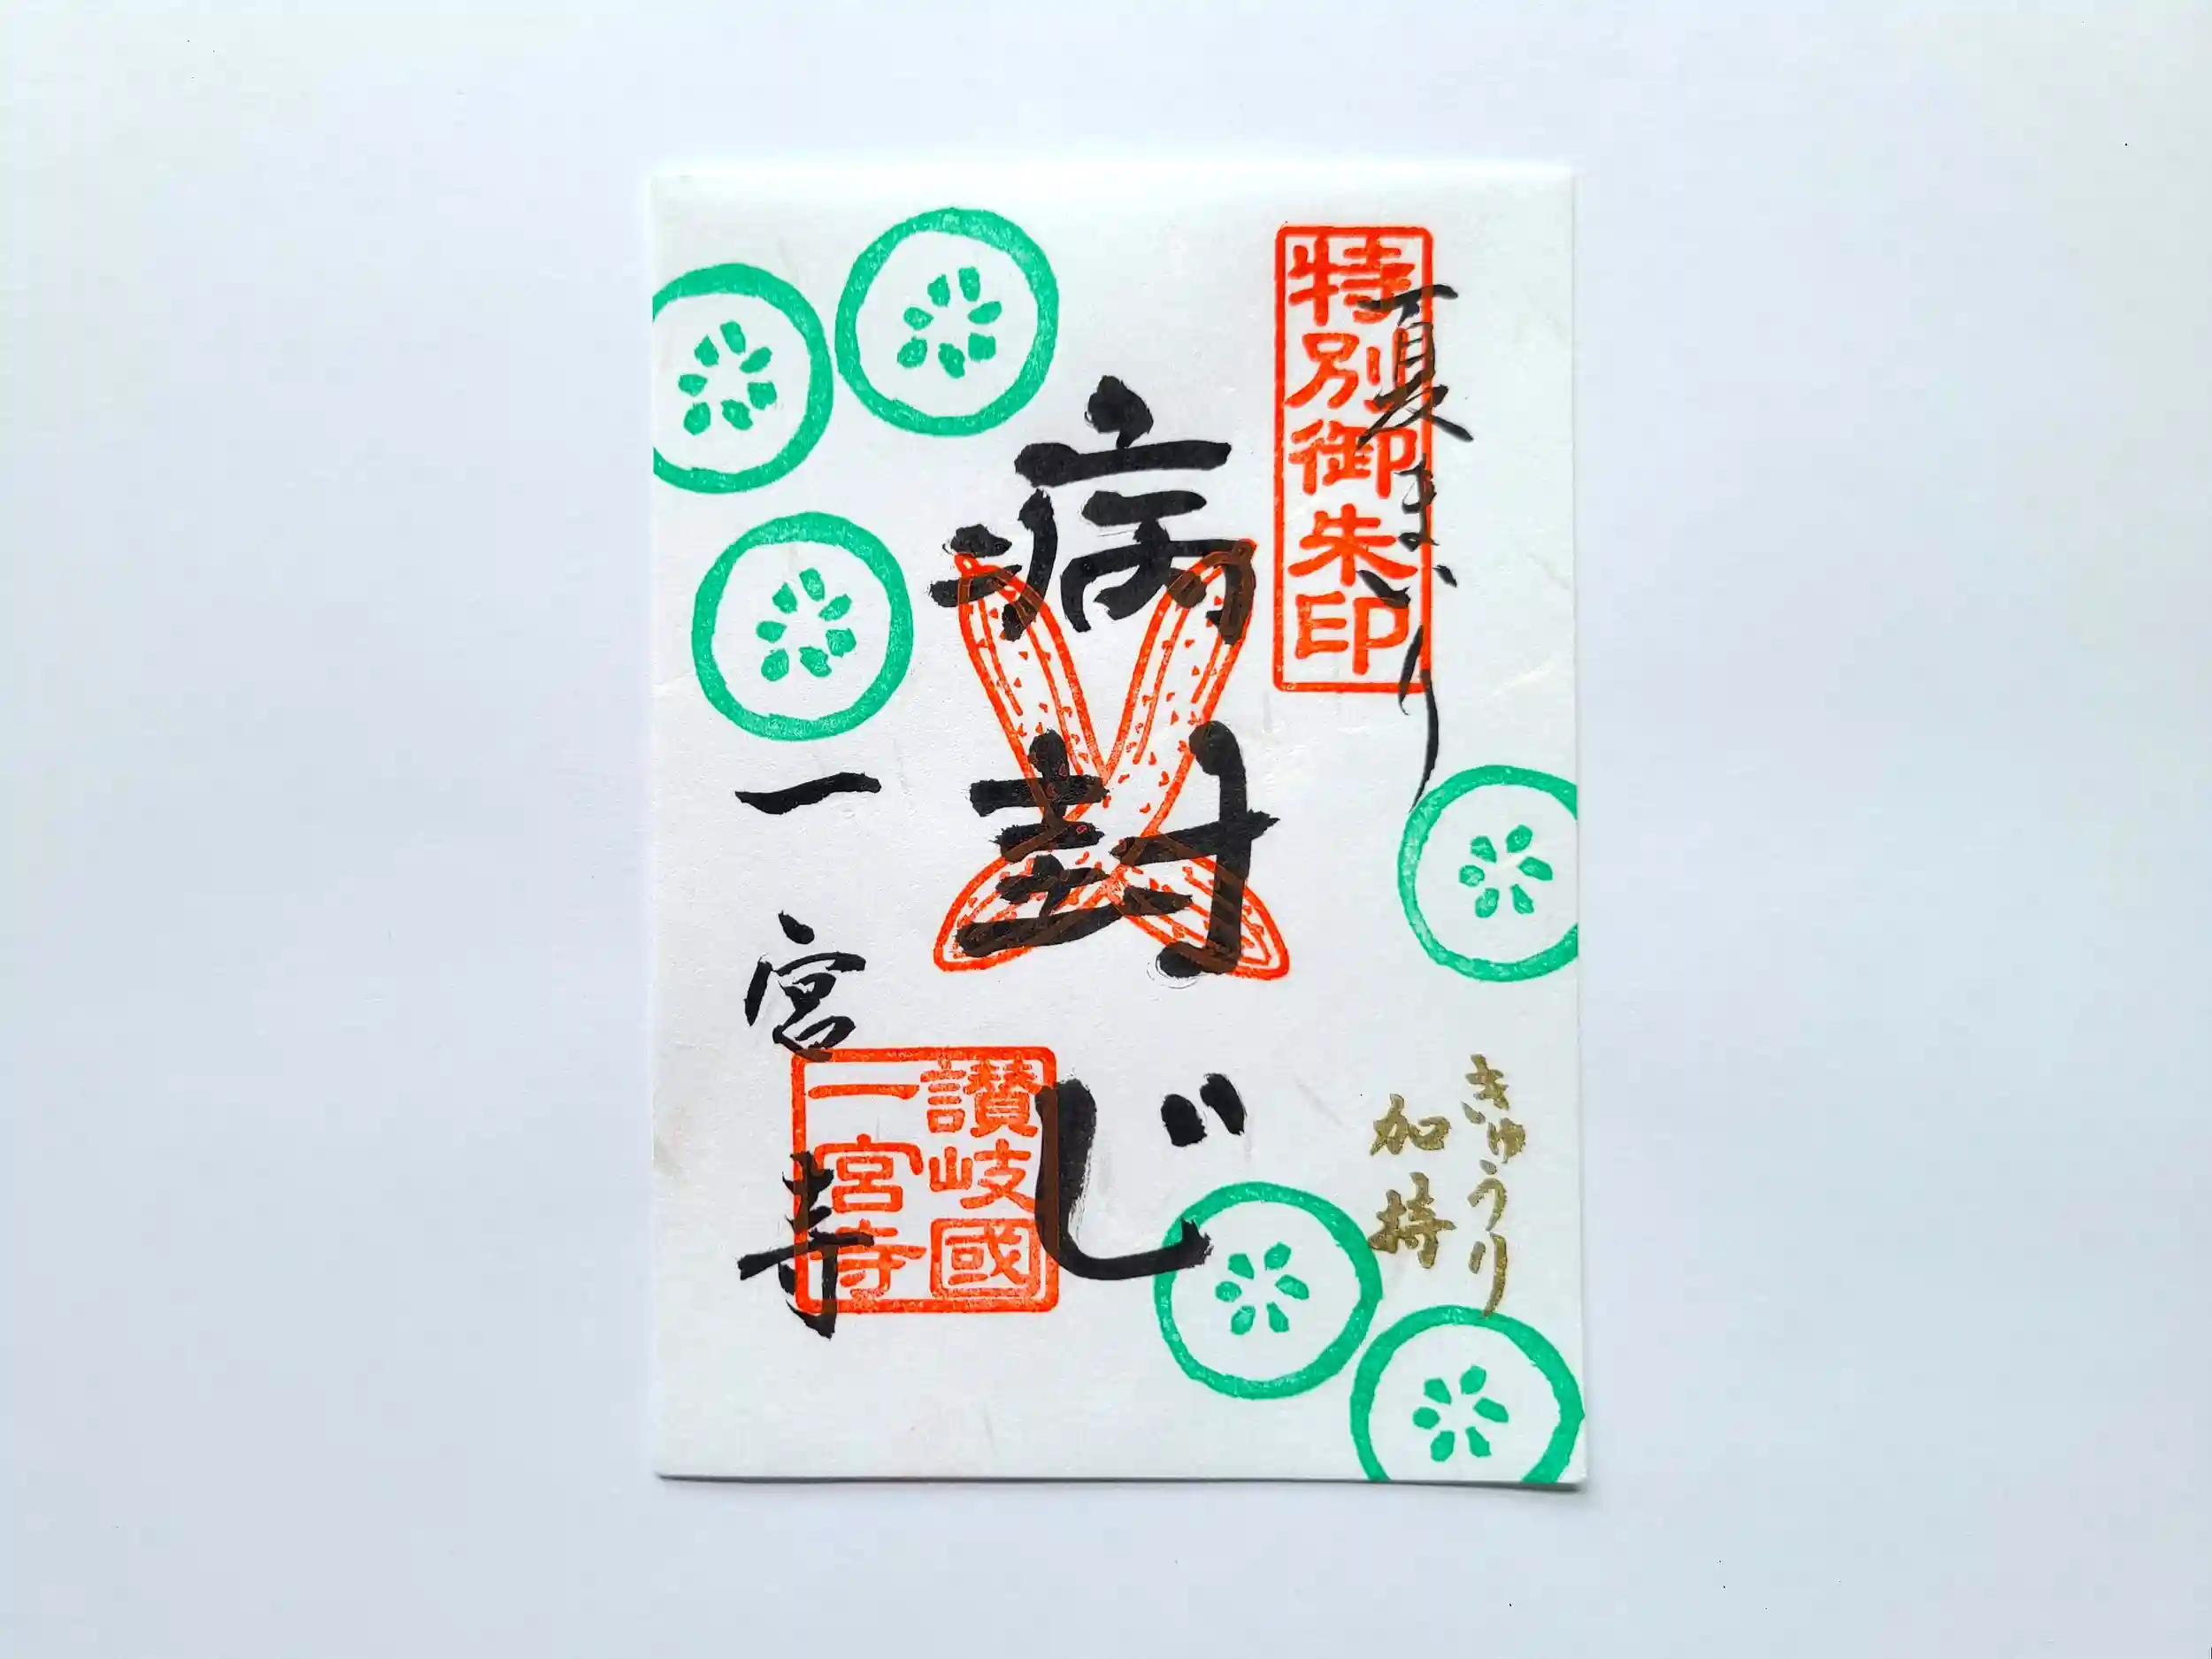 特別御朱印
夏まいり
きゅうり
加持
病封じ
讃岐國
一宮寺
一宮寺